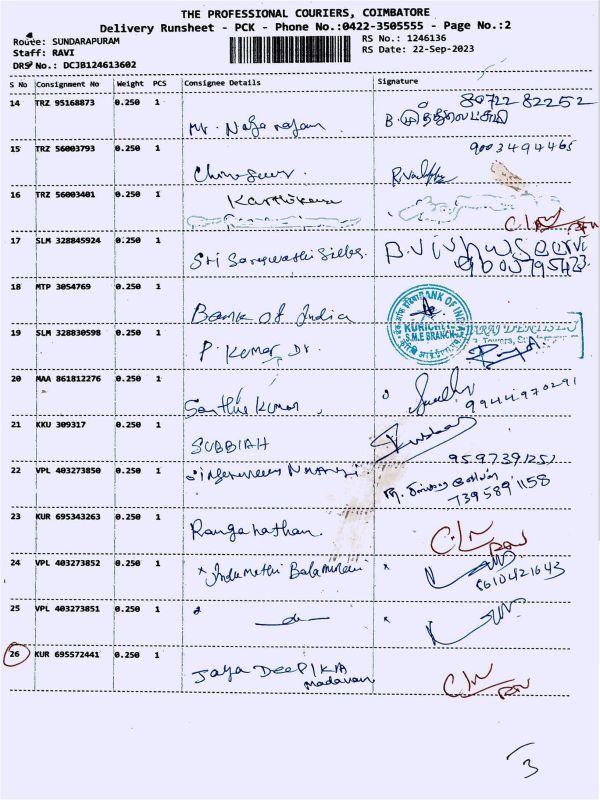 THE PROFESSIONAL COURIERS, COIMBATORE
Delivery Runsheet - PCK - Phone No.:0422-3505555 - Page No.:2
Route: SUNDARAPURAM
RS No.: 1246136
Staff: RAVI
RS Date: 22-Sep-2023
DRS No.: DCJB124613602
S No Consignment No Weight PCS Consignee Details Signature
14 TRZ 95168873 0.250 1
80722 82252
Mr. Nagarajan
15 TRZ 56003793 0.250 1
9003494465
16 TRZ 56003401 0.250 1
Karthikeyan
17 SLM 328845924 0.250 1
Sri Saraswathi Silks
9005795423
18 MTP 3054769 0.250 1
Bank of India
BANK OF INDIA
KURICHI
S.M.E BRANCH
19 SLM 328830598 0.250 1
P. Kumar Dr.
20 MAA 861812276 0.250 1
Santhis Kumar
9944970291
21 KKU 309317 0.250 1
SUBBIAH
22 VPL 403273850 0.250 1
9597391251
7395891158
23 KUR 695343263 0.250 1
Ranganathan
24 VPL 403273852 0.250 1
Indumathi Balamurali
8610421643
25 VPL 403273851 0.250 1
do
26 KUR 695572441 0.250 1
Jaya DEEPIKA
Madavan
3